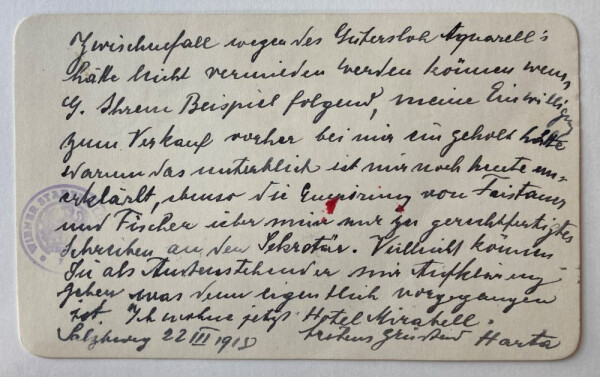 Zwischenfall wegen des Gütersloh Aquarell's
hätte leicht vermieden werden können wenn
G. Ihrem Beispiel folgend, meine Einwilligung
zum Verkauf vorher bei mir ein geholt hätte
warum das unterblieb ist mir noch heute un-
erklärlich, ebenso die Empörung von Faistauer
und Fischer über mein nur zu gerechtfertigtes
Schreiben an den Sekretär. Vielleicht können
Sie als Aussenstehender mir Aufklärung
geben was denn eigentlich vorgegangen
ist. Ich wohne jetzt Hotel Mirabell.
Salzburg 22 III 1918 bestens grüssend Harta
WIENER STADT